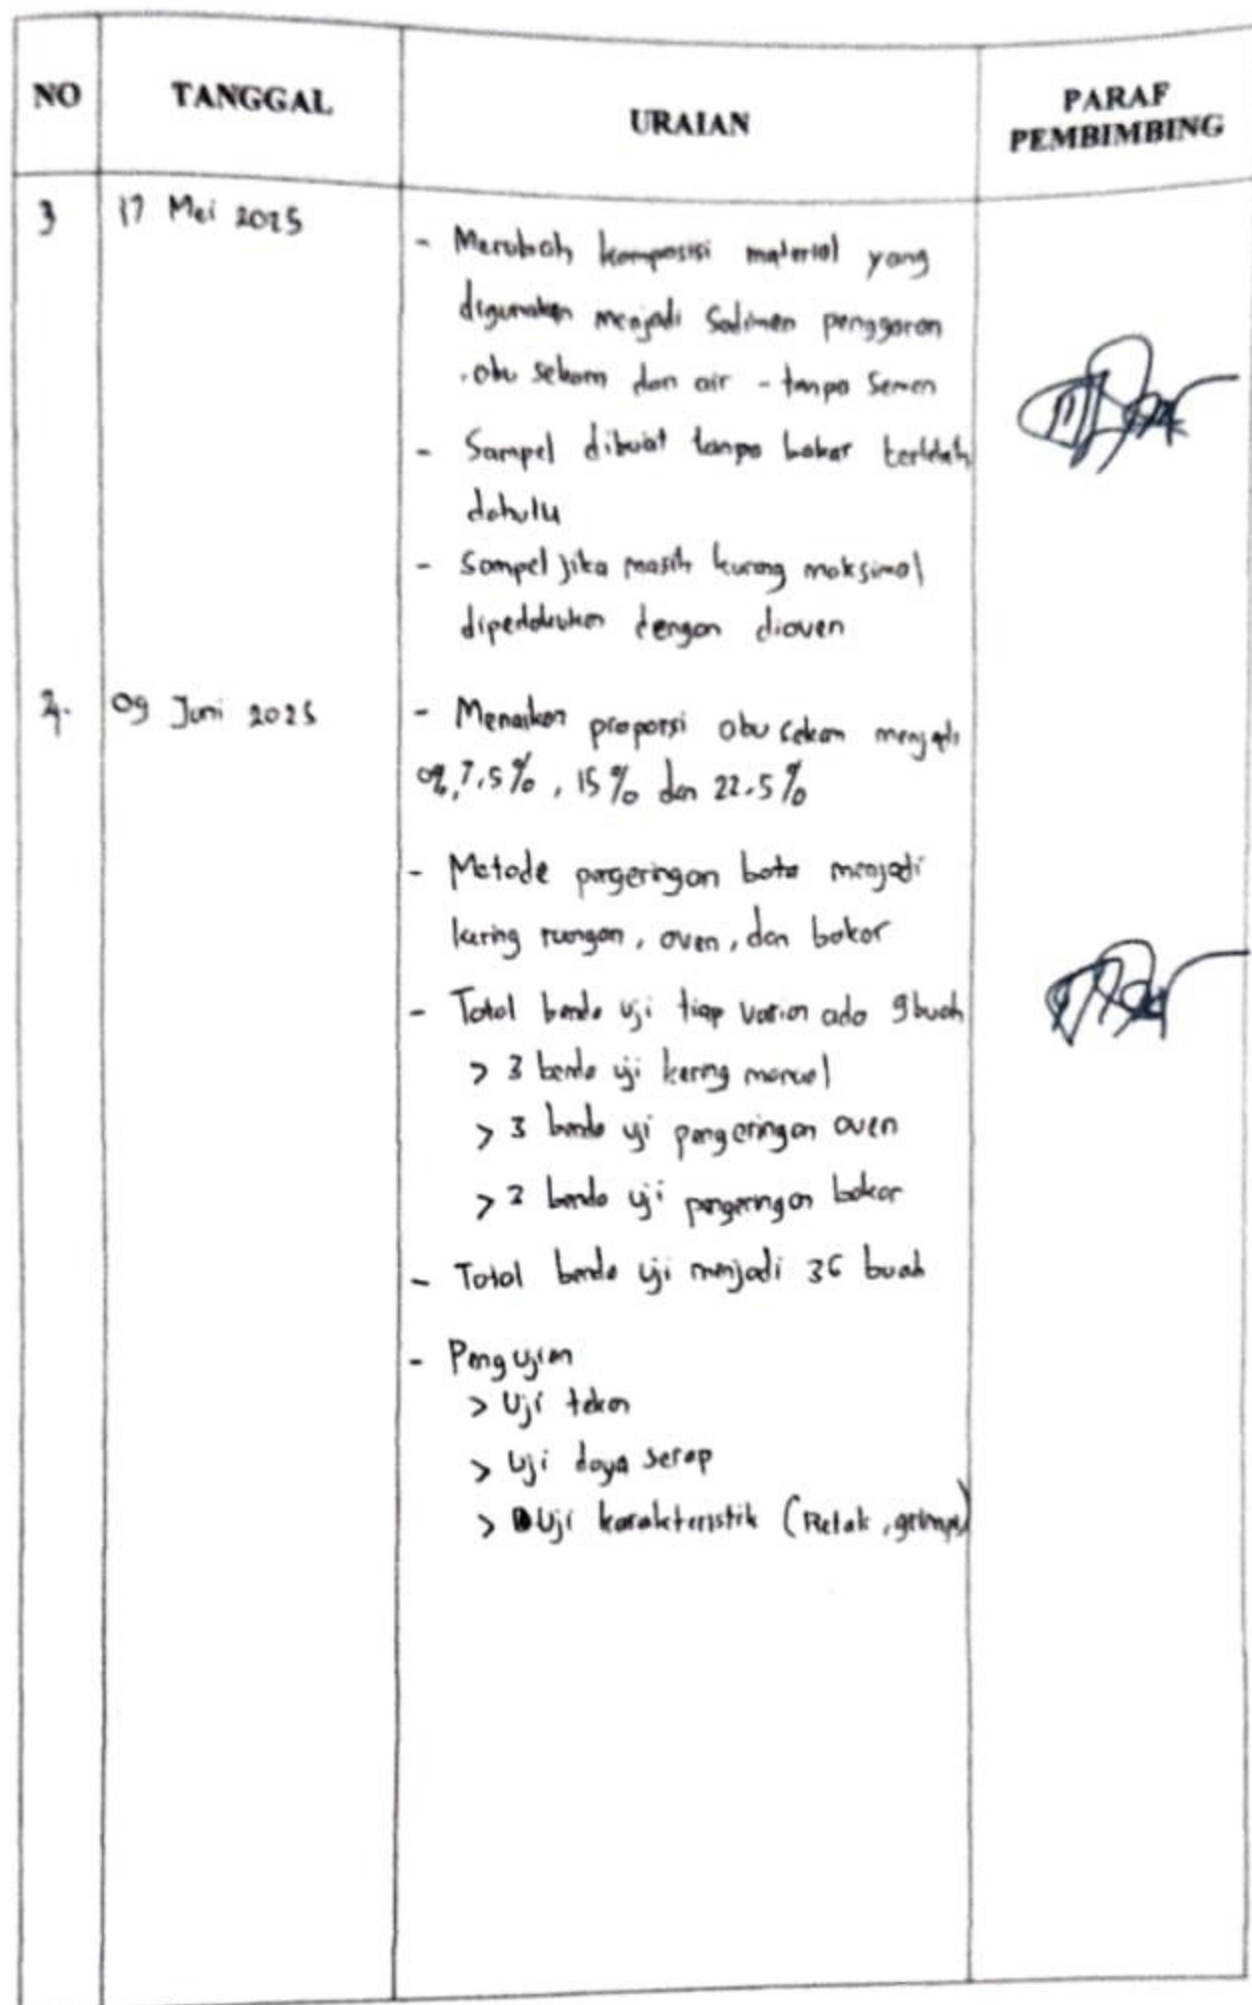 NO
TANGGAL
URAIAN
PARAF
PEMBIMBING
3
17 Mei 2025
- Merubah komposisi material yang
digunakan menjadi Sedimen penggaron
, abu sekam dan air - tanpa Semen
- Sampel dibuat tanpa bakar terlebih
dahulu
- Sampel jika masih kurang maksimal
diperlakukan dengan dioven
4.
09 Juni 2025
- Menaikan proporsi abu sekam menjadi
0%, 7,5%, 15% dan 22.5%
- Metode pengeringan bata menjadi
kering ruangan, oven, dan bakar
- Total benda uji tiap varian ada 9 buah
> 3 benda uji kering manual
> 3 benda uji pengeringan oven
> 3 benda uji pengeringan bakar
- Total benda uji menjadi 36 buah
- Pengujian
> Uji tekan
> Uji daya serap
> Uji karakteristik (Retak,